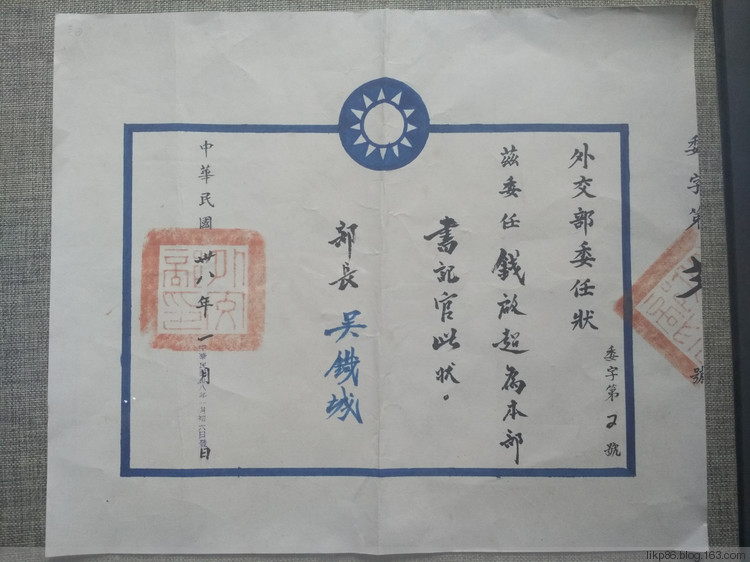 委字第
號
外交部委任狀
委字第2號
茲委任錢啟超為本部
書記官此狀。
部長 吳鐵城
中華民國卅八年一月 日
likp86.blog.163.com